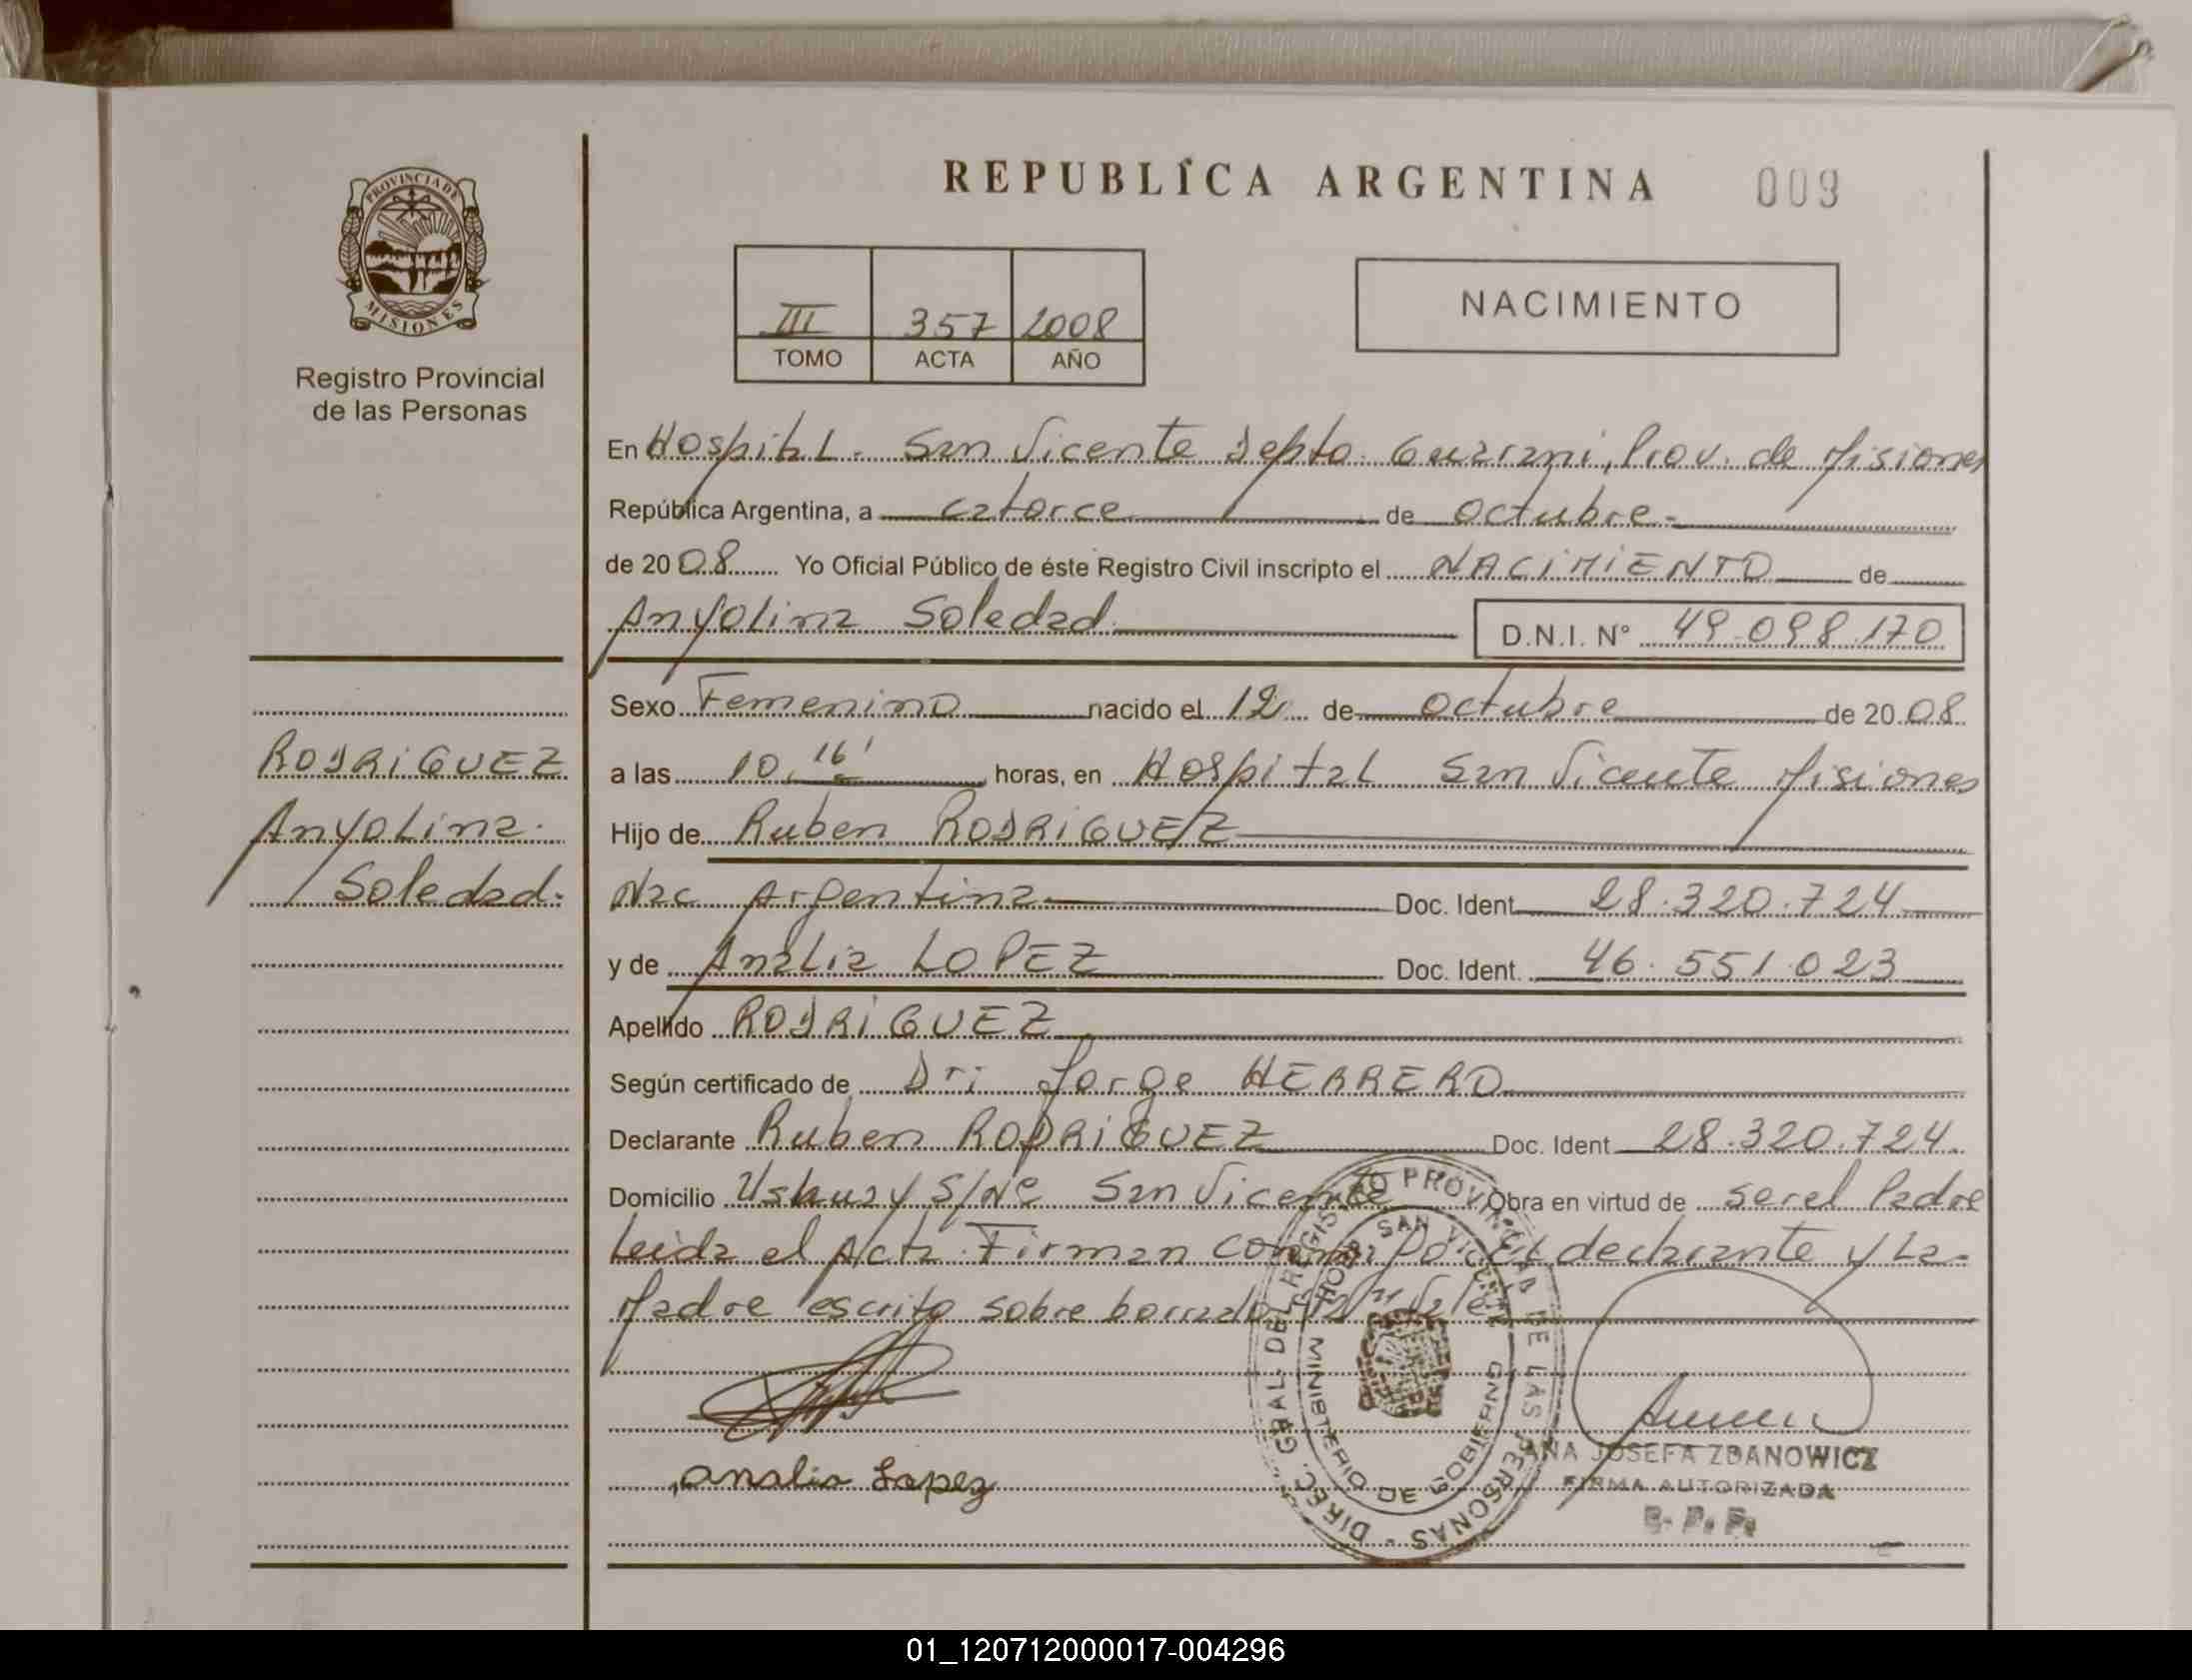 REPUBLICA ARGENTINA 009
PROVINCIA DE
MISIONES
Registro Provincial
de las Personas
III 357 2008
TOMO ACTA AÑO
NACIMIENTO
En Hospital - San Vicente Depto. Guarani, Prov. de Misiones
República Argentina, a catorce de octubre-
de 2008 Yo Oficial Público de éste Registro Civil inscripto el NACIMIENTO de
Anyolina Soledad. D.N.I. N° 49.098.170
Sexo Femenino nacido el 12 de octubre de 2008
RODRIGUEZ
a las 10,16' horas, en Hospital San Vicente Misiones
Anyolina.
Hijo de Ruben RODRIGUEZ
Soledad.
Nac Argentina Doc. Ident. 28.320.724
y de Analia LOPEZ Doc. Ident. 46.551.023
Apellido RODRIGUEZ
Según certificado de Dr: Jorge HERRERO
Declarante Ruben RODRIGUEZ Doc. Ident. 28.320.724.
Domicilio S/Nº San Vicente Obra en virtud de ser el Padre
Leida el Acta Firman declarante y La-
Madre escrito sobre borrado Vale
DIREC. GRAL. DEL REGISTRO PROVINCIAL DE LAS PERSONAS
HOSP. SAN VICENTE
MINISTERIO DE GOBIERNO
analia Lopez
ANA JOSEFA ZDANOWICZ
FIRMA AUTORIZADA
R. P. P.
01_120712000017-004296